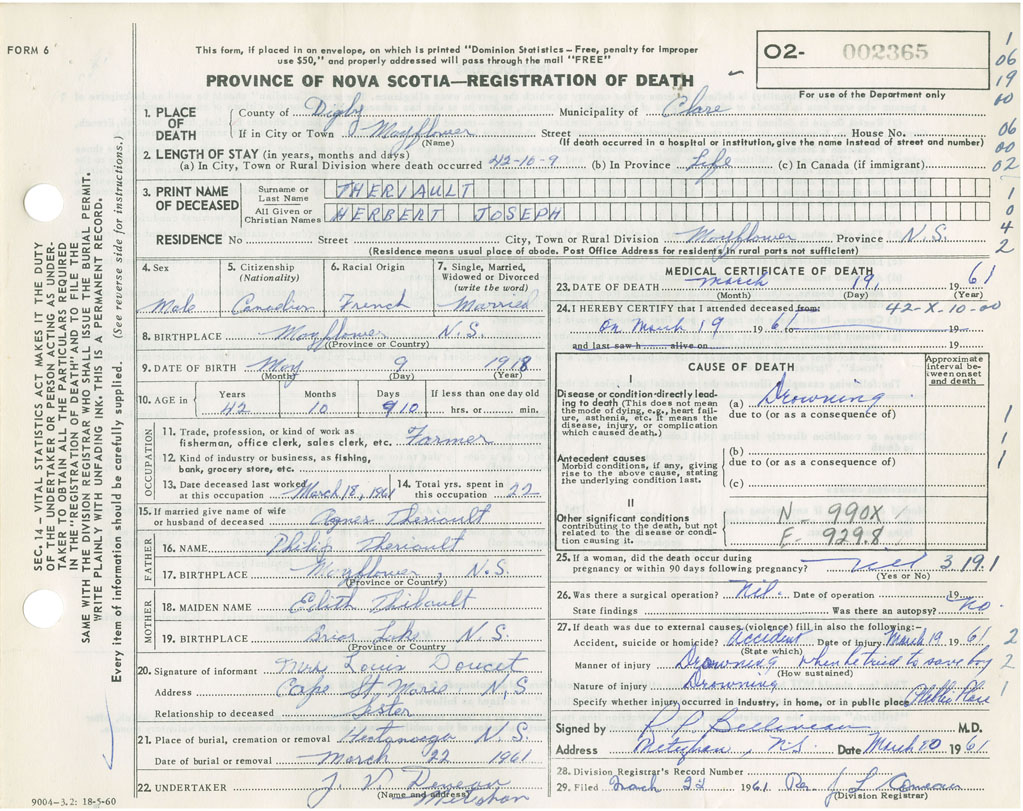 FORM 6
This form, if placed in an envelope, on which is printed "Dominion Statistics - Free, penalty for improper
use $50," and properly addressed will pass through the mail "FREE"
PROVINCE OF NOVA SCOTIA—REGISTRATION OF DEATH
O2- 002365
For use of the Department only
1 06 19 60 06 00 02 1 0 4 2
SEC. 14 – VITAL STATISTICS ACT MAKES IT THE DUTY
OF THE UNDERTAKER OR PERSON ACTING AS UNDER-
TAKER TO OBTAIN ALL THE PARTICULARS REQUIRED
IN THE "REGISTRATION OF DEATH" AND TO FILE THE
SAME WITH THE DIVISION REGISTRAR WHO SHALL ISSUE THE BURIAL PERMIT.
WRITE PLAINLY WITH UNFADING INK. THIS IS A PERMANENT RECORD.
Every item of information should be carefully supplied. (See reverse side for instructions.)
1. PLACE OF DEATH
County of Digby Municipality of Clare
If in City or Town Mayflower Street House No.
(Name) (If death occurred in a hospital or institution, give the name instead of street and number)
2. LENGTH OF STAY (in years, months and days)
(a) In City, Town or Rural Division where death occurred 42-10-9 (b) In Province Life (c) In Canada (if immigrant)
3. PRINT NAME OF DECEASED
Surname or Last Name THERIAULT
All Given or Christian Names HERBERT JOSEPH
RESIDENCE No Street City, Town or Rural Division Mayflower Province N.S.
(Residence means usual place of abode. Post Office Address for residents in rural parts not sufficient)
4. Sex
Male
5. Citizenship (Nationality)
Canadian
6. Racial Origin
French
7. Single, Married, Widowed or Divorced (write the word)
Married
8. BIRTHPLACE Mayflower N.S.
(Province or Country)
9. DATE OF BIRTH May 9 1918
(Month) (Day) (Year)
10. AGE in Years Months Days If less than one day old
42 10 910 hrs. or min.
OCCUPATION
11. Trade, profession, or kind of work as
fisherman, office clerk, sales clerk, etc. Farmer
12. Kind of industry or business, as fishing,
bank, grocery store, etc.
13. Date deceased last worked at this occupation March 18, 1961
14. Total yrs. spent in this occupation 22
15. If married give name of wife
or husband of deceased Agnes Theriault
FATHER
16. NAME Philip Theriault
17. BIRTHPLACE Mayflower, N.S.
(Province or Country)
MOTHER
18. MAIDEN NAME Edith Thibault
19. BIRTHPLACE Briar Lake N.S.
(Province or Country
20. Signature of informant Mrs. Louis Doucet
Address Cape St. Marie N.S
Relationship to deceased Sister
21. Place of burial, cremation or removal Hectanooga N.S.
Date of burial or removal March 22 1961
22. UNDERTAKER J. V. Meteghan
(Name and address)
9004-3.2: 18-5-60
MEDICAL CERTIFICATE OF DEATH
23. DATE OF DEATH March 19, 1961
(Month) (Day) (Year)
24. I HEREBY CERTIFY that I attended deceased from: 42-X-10-00
on March 19 1961 19
and last saw h alive on 19
CAUSE OF DEATH
Approximate interval between onset and death
I
Disease or condition directly leading to death (This does not mean the mode of dying, e.g., heart failure, asthenia, etc. It means the disease, injury, or complication which caused death.)
(a) Drowning
due to (or as a consequence of)
Antecedent causes
Morbid conditions, if any, giving rise to the above cause, stating the underlying condition last.
(b)
due to (or as a consequence of)
(c)
1 1 1
II
Other significant conditions
contributing to the death, but not related to the disease or condition causing it.
N - 990X
E - 929.8
25. If a woman, did the death occur during
pregnancy or within 90 days following pregnancy? 319.1
(Yes or No)
26. Was there a surgical operation? Nil. Date of operation 19
State findings Was there an autopsy? No.
27. If death was due to external causes (violence) fill in also the following:–
Accident, suicide or homicide? Accident Date of injury March 19 1961 2
(State which)
Manner of injury Drowning when he tried to save boy 2
(How sustained)
Nature of injury Drowning
Specify whether injury occurred in industry, in home, or in public place Public Place 1
Signed by M.D.
Address Meteghan, N.S. Date March 20 1961
28. Division Registrar's Record Number
29. Filed March 22 1961 Per J L Comeau
(Division Registrar)